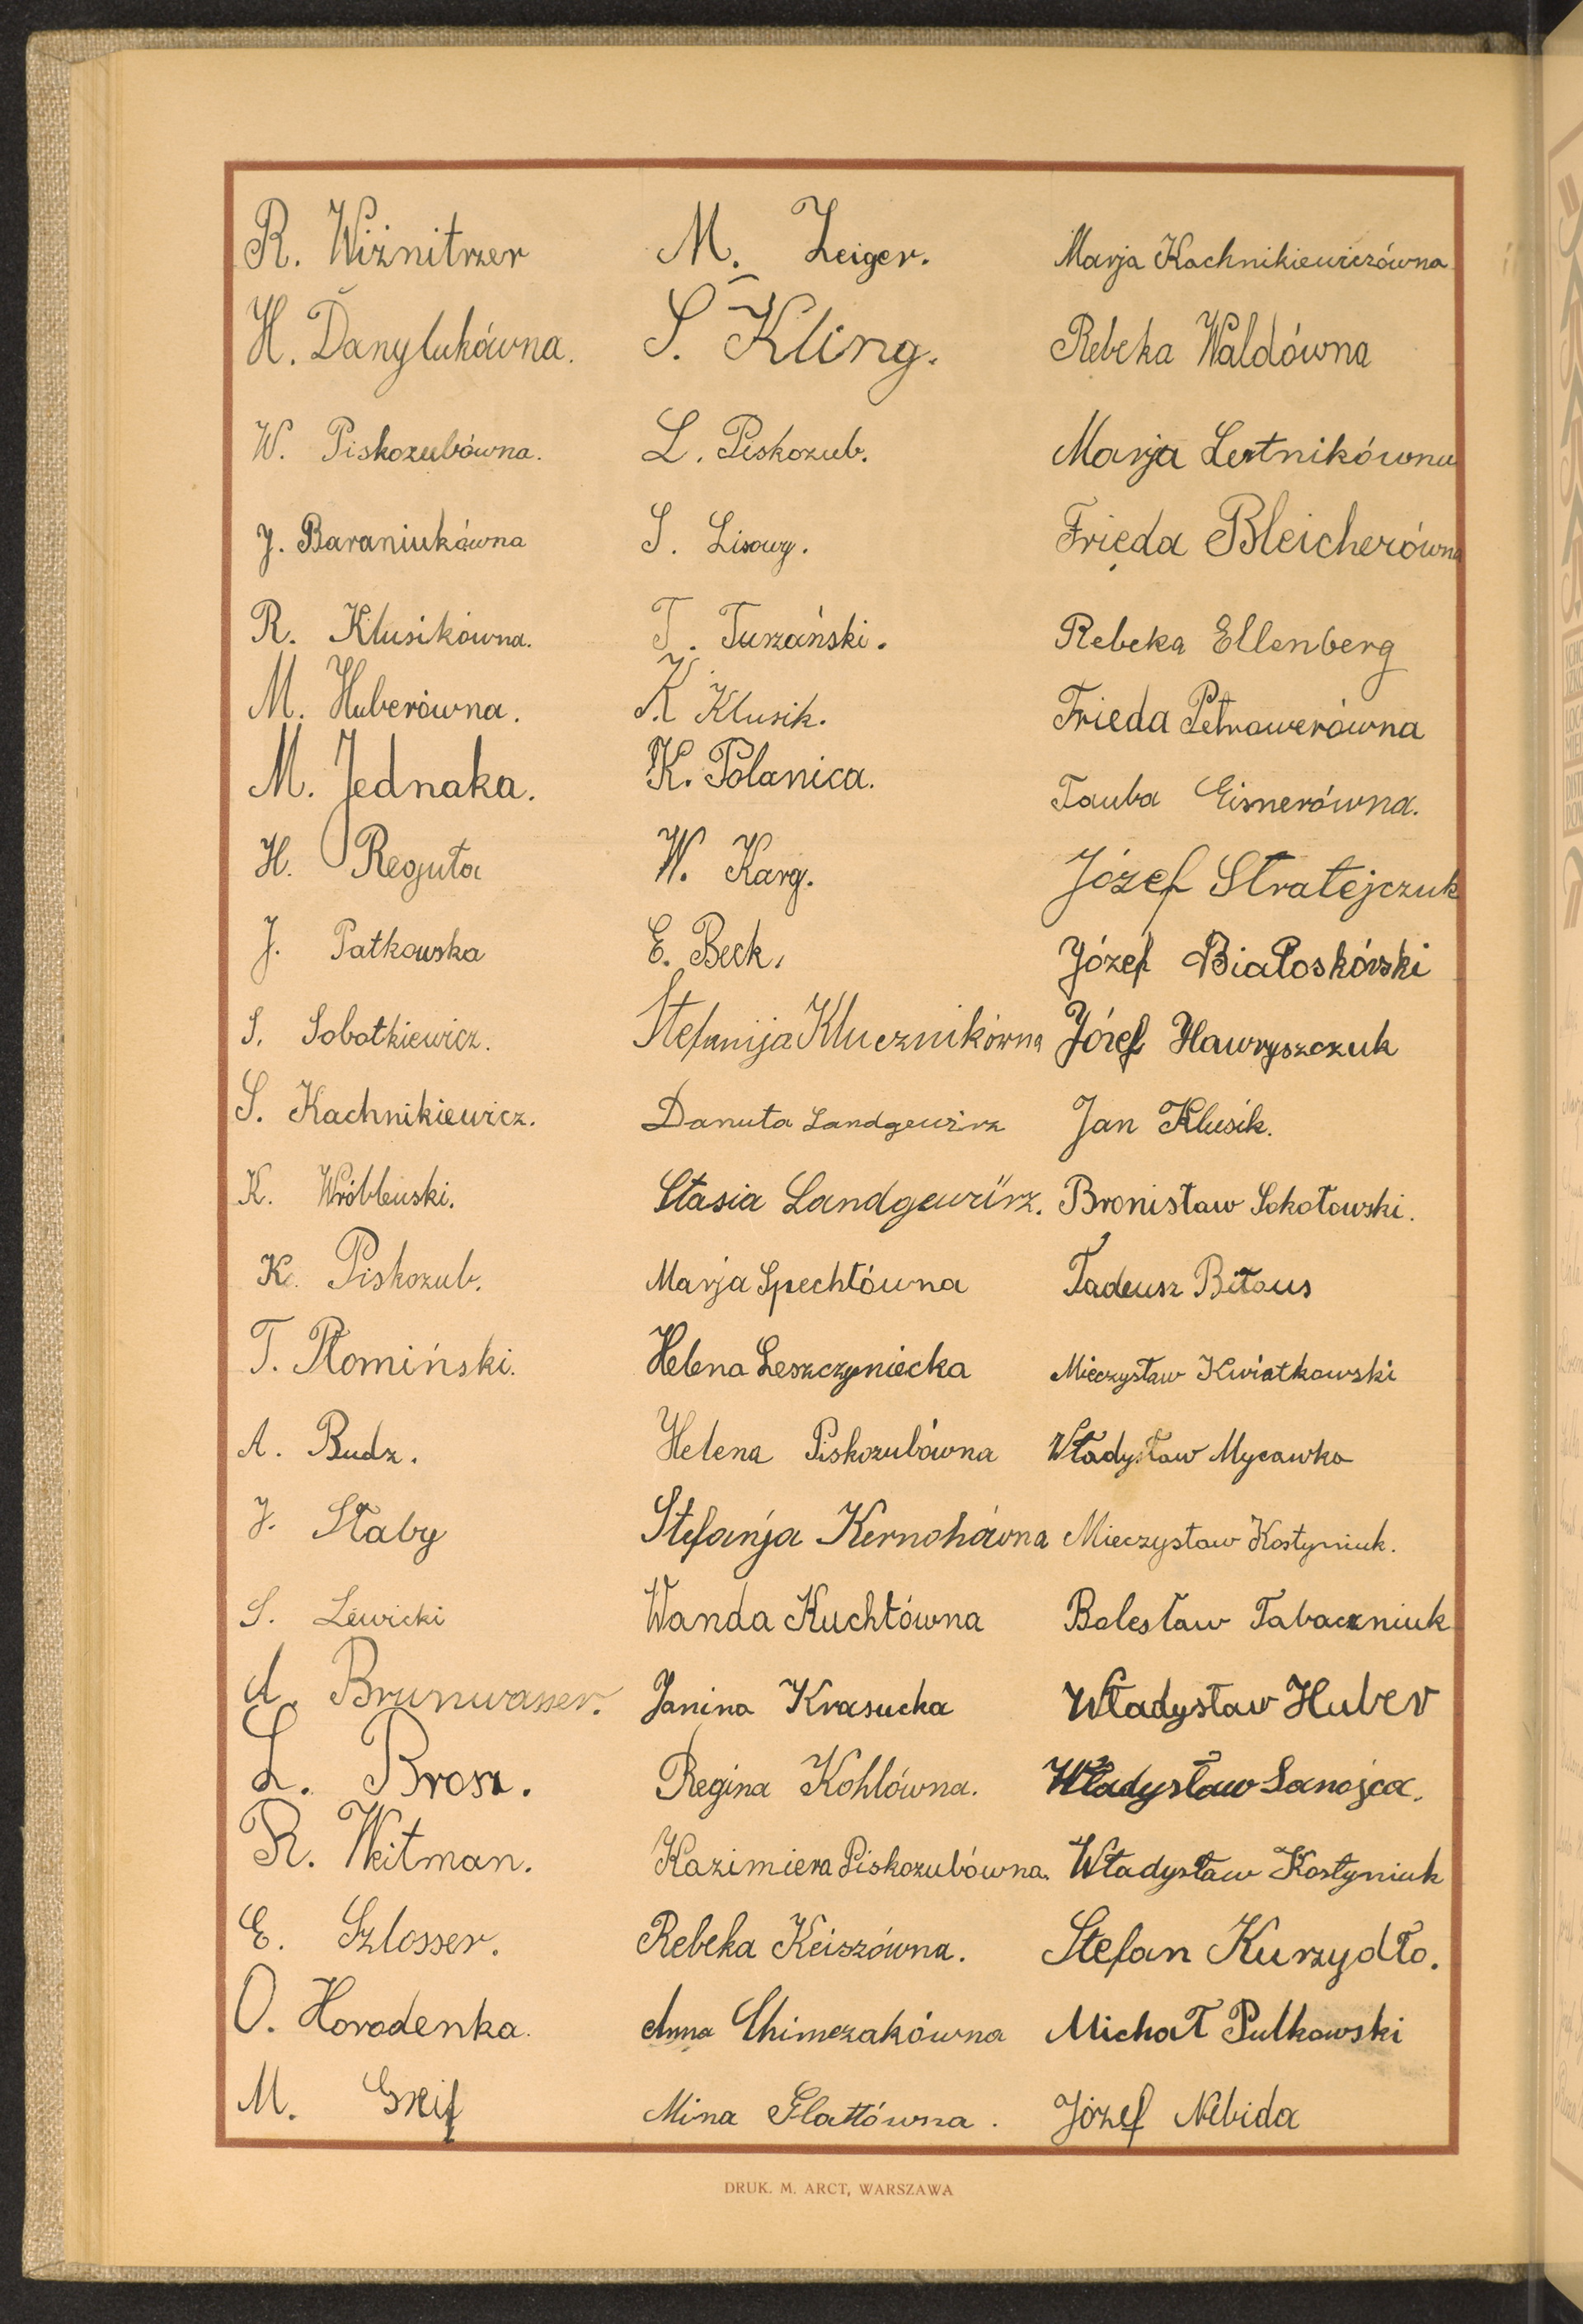 R. Wiżnitrzer
H. Danylukówna.
W. Piskozubówna.
J. Baraniukówna
R. Klusikówna.
M. Huberówna.
M. Jednaka.
H. Reguła
J. Patkowska
S. Sobotkiewicz.
S. Kachnikiewicz.
K. Wróblewski.
K. Piskozub.
T. Płomiński.
A. Budz.
J. Słaby
S. Lewicki
A. Brunwasser.
L. Brosz.
R. Weitman.
E. Szlosser.
O. Horodenka.
M.
M. Zeiger.
S. Kling.
L. Piskozub.
S. Lisowy.
T. Turzański.
K. Klusik.
K. Polanica.
W. Karg.
E. Beck.
Stefanija Klucznikówna
Danuta Landgewirz
Stasia Landgewürz.
Marja Spechtówna
Helena Leszczyniecka
Helena Piskozubówna
Stefanja Kernohówna
Wanda Kuchtówna
Janina Krasucka
Regina Kohlówna.
Kazimiera Piskozubówna.
Rebeka Keiszówna.
Anna Chimczakówna
Mina Glattówna.
Marja Kachnikiewiczówna
Rebeka Waldówna
Marja Letnikówna
Frieda Bleicherówna
Rebeka Ellenberg
Frieda Petrowerówna
Tauba Eisnerówna.
Józef Stratejczuk
Józef Białoskórski
Józef Hawryszczuk
Jan Klusik.
Bronisław Sokołowski.
Tadeusz Biłous
Mieczysław Kwiatkowski
Władysław Mycawka
Mieczysław Kostyniuk.
Bolesław Tabaczniuk
Władysław Huber
Władysław Sanojca.
Władysław Kostyniuk
Stefan Kurzydło.
Michał Pulkowski
Józef Nebida
DRUK. M. ARCT, WARSZAWA